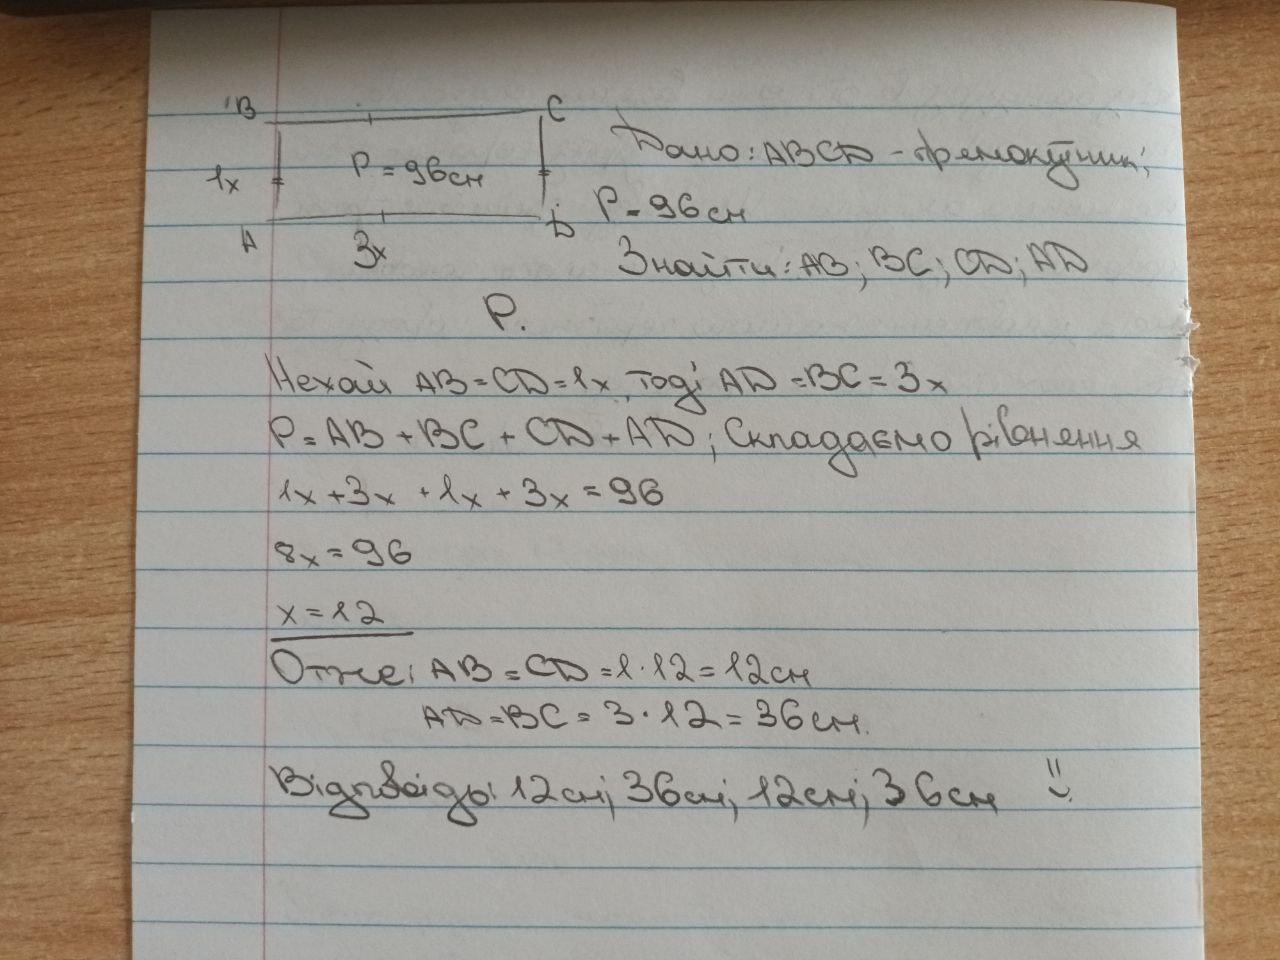 B C
1x P = 96 см
A 3x D
Дано: ABCD - прямокутник;
P = 96 см
Знайти: AB; BC; CD; AD
Р.
Нехай AB = CD = 1x, тоді AD = BC = 3x
P = AB + BC + CD + AD; Складаємо рівняння
1x + 3x + 1x + 3x = 96
8x = 96
x = 12
Отже: AB = CD = 1 · 12 = 12 см
AD = BC = 3 · 12 = 36 см.
Відповідь: 12 см; 36 см; 12 см; 36 см